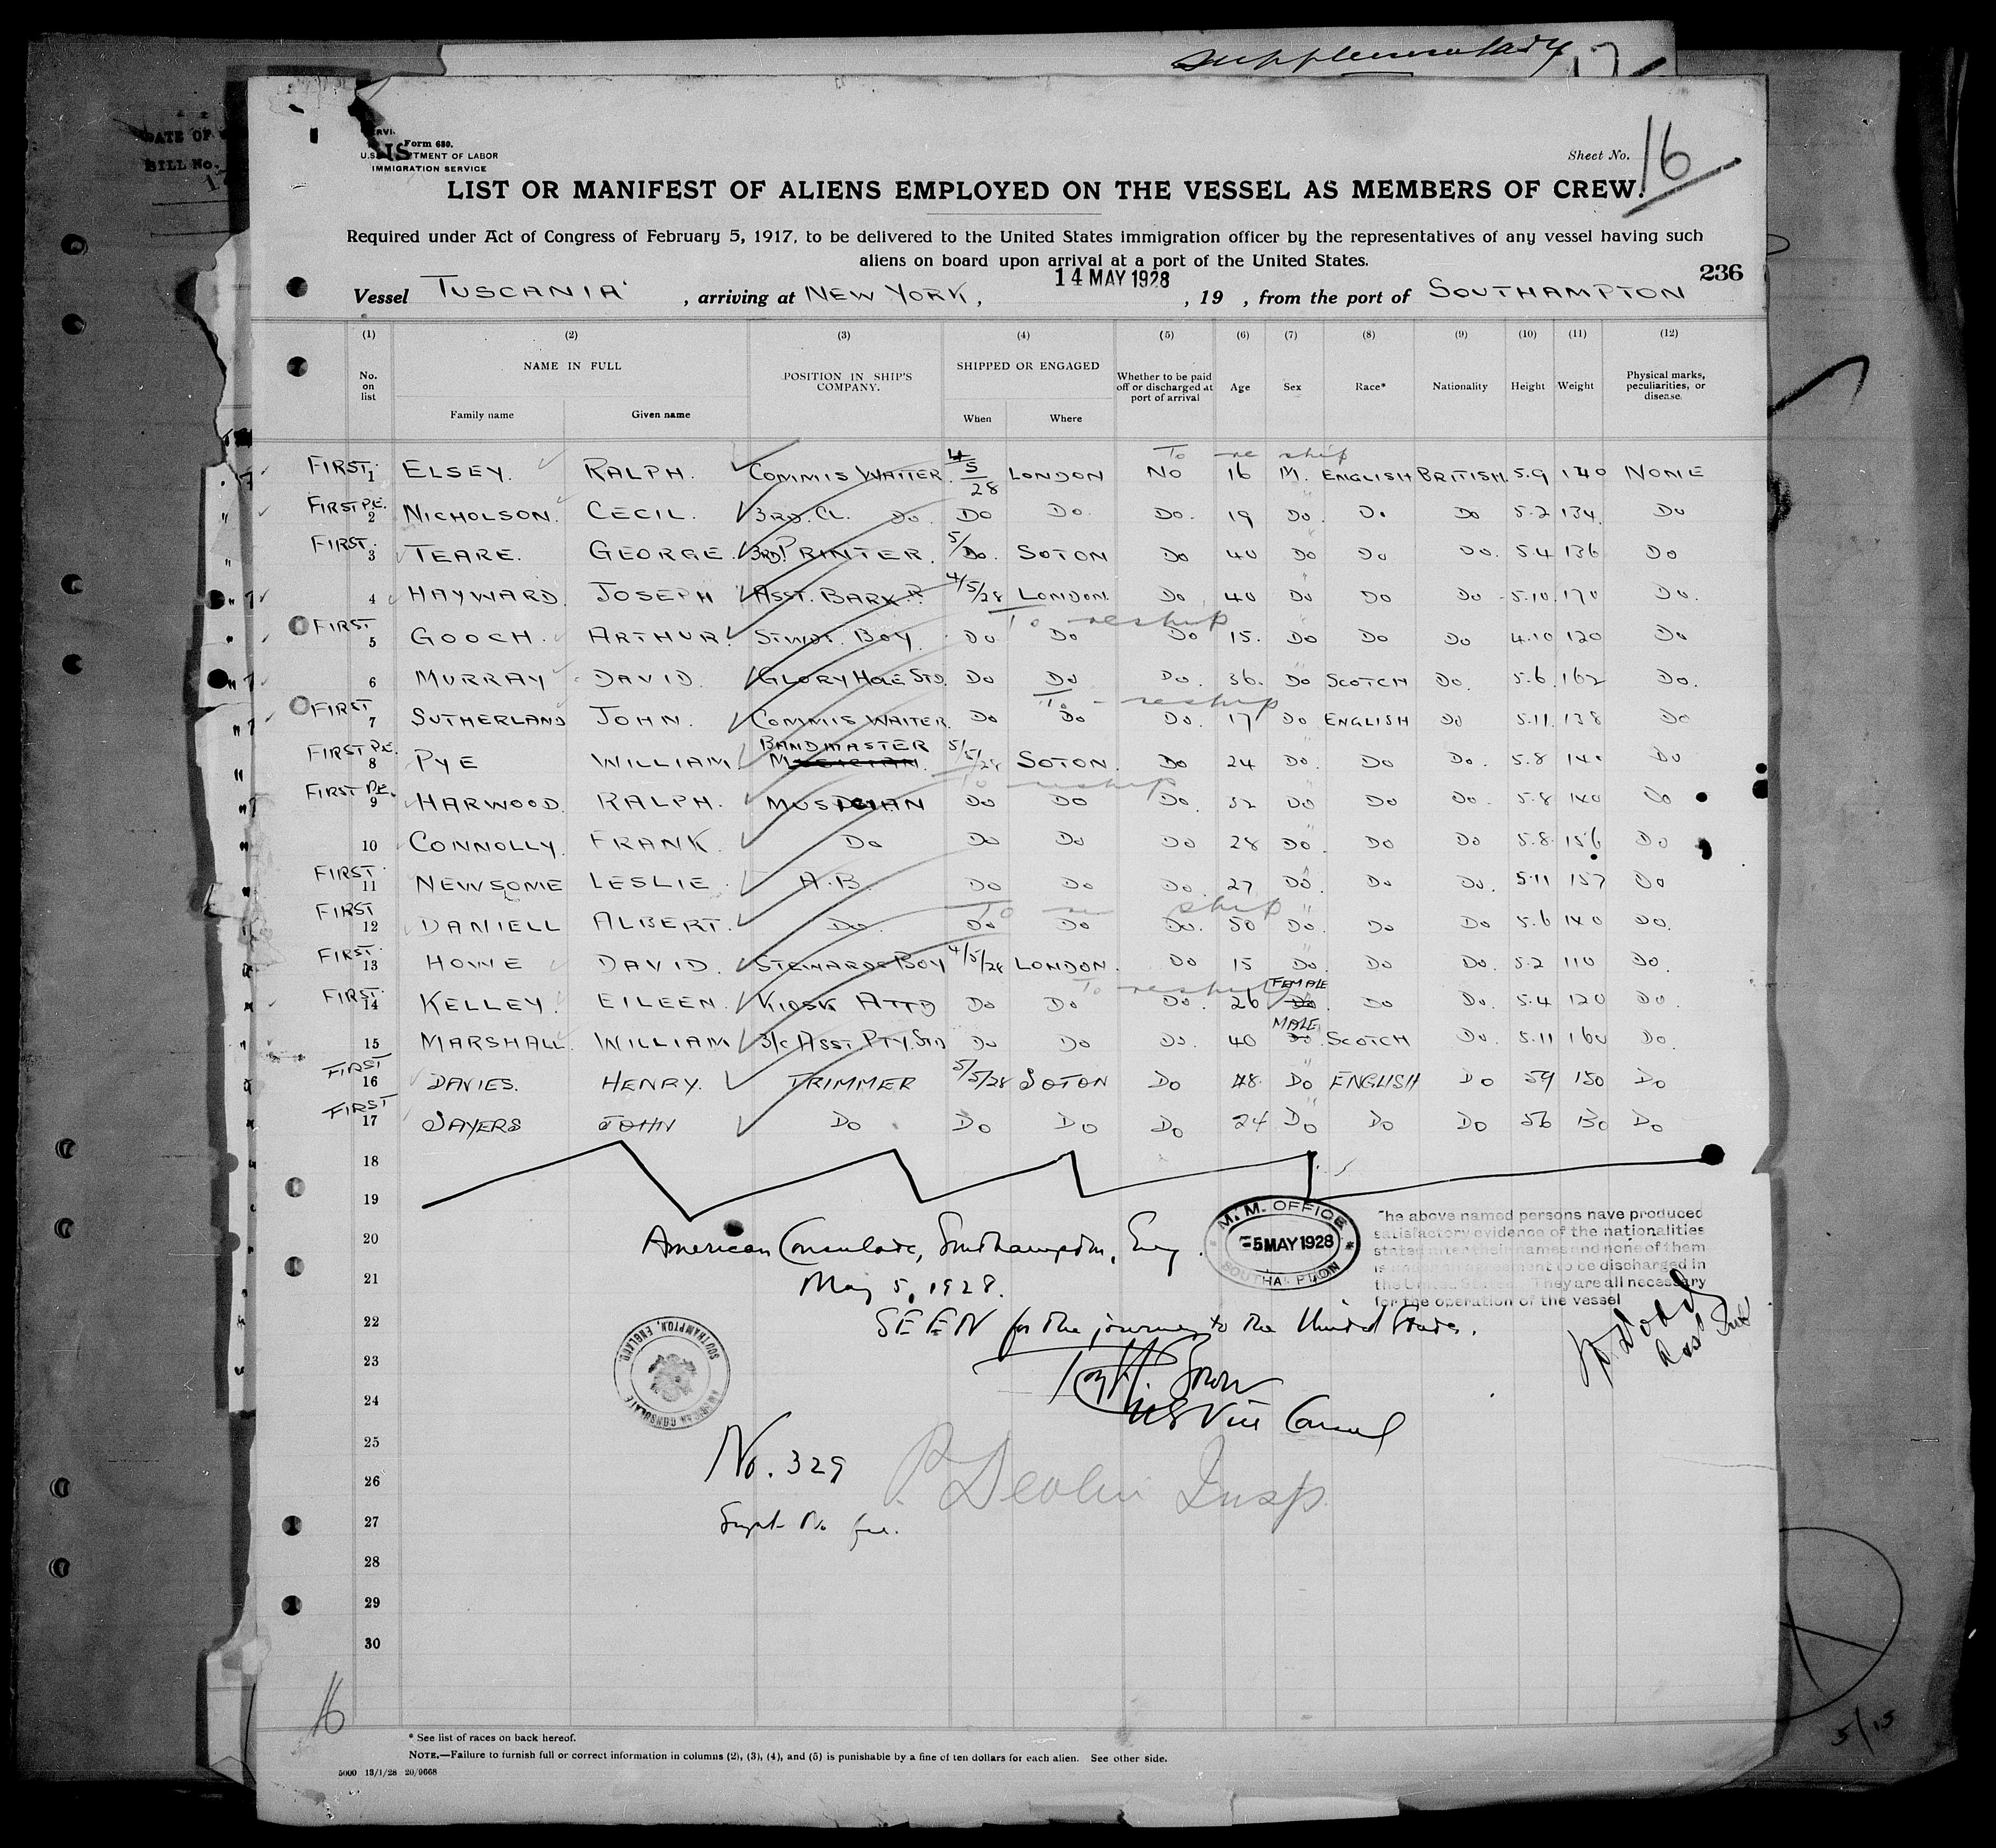 supplementary
DATE OF
BILL No.
Form 680.
U.S. TMENT OF LABOR
IMMIGRATION SERVICE
Sheet No. 16
LIST OR MANIFEST OF ALIENS EMPLOYED ON THE VESSEL AS MEMBERS OF CREW.
Required under Act of Congress of February 5, 1917, to be delivered to the United States immigration officer by the representatives of any vessel having such
aliens on board upon arrival at a port of the United States.
236
Vessel TUSCANIA, arriving at NEW YORK, 14 MAY 1928, 19 , from the port of SOUTHAMPTON
(1) (2) (3) (4) (5) (6) (7) (8) (9) (10) (11) (12)
No. on list NAME IN FULL POSITION IN SHIP'S COMPANY. SHIPPED OR ENGAGED Whether to be paid off or discharged at port of arrival Age Sex Race* Nationality Height Weight Physical marks, peculiarities, or disease.
Family name Given name When Where
To re ship
FIRST 1 ELSEY. RALPH. COMMIS WAITER. 4/5/28 LONDON NO 16 M. ENGLISH BRITISH 5.9 140 NONE
FIRST P.E. 2 NICHOLSON. CECIL. 3RD. CL. DO. DO DO. DO. 19 DO. DO DO 5.2 134. DO
FIRST 3 TEARE. GEORGE. 3RD. PRINTER. 5/DO. SOTON DO 40 DO DO DO. 5.4 136 DO
4 HAYWARD. JOSEPH ASST. BARKR. 4/5/28 LONDON. DO 40 DO DO DO 5.10. 170 DO.
To reship
FIRST 5 GOOCH. ARTHUR. STWDS. BOY. DO DO DO 15. DO DO DO 4.10 120 DO
6 MURRAY DAVID. GLORY HOLE STD. DO DO DO. 36. DO SCOTCH DO. 5.6. 162 DO.
To reship
FIRST 7 SUTHERLAND JOHN. COMMIS WAITER. DO DO DO. 17 DO ENGLISH DO 5.11. 138 DO
BANDMASTER
FIRST P.E. 8 PYE WILLIAM. 5/5/28 SOTON. DO 24 DO. DO DO. 5.8 140 DO
To reship
FIRST P.E. 9 HARWOOD. RALPH. MUSICIAN DO DO DO. 32 DO DO DO. 5.8 140 DO
10 CONNOLLY. FRANK. DO DO DO DO 28 DO. DO DO 5.8. 156 DO
FIRST 11 NEWSOME LESLIE. A.B. DO DO DO. 27 DO. DO DO. 5.11 157 DO
To re ship
FIRST 12 DANIELL ALBERT. DO. DO DO DO. 50 DO. DO DO 5.6 140 DO.
FIRST 13 HOWE DAVID. STEWARDS BOY 4/5/28 LONDON. DO 15 DO. DO DO. 5.2 110 DO.
To reship FEMALE
FIRST 14 KELLEY. EILEEN. KIOSK ATTD DO DO DO. 26 DO DO DO. 5.4 120 DO.
MALE
15 MARSHALL. WILLIAM 3/C ASST. PTY. STD DO DO DO. 40 DO SCOTCH DO. 5.11 160 DO.
FIRST 16 DAVIES. HENRY. TRIMMER 5/5/28 SOTON DO 48. DO ENGLISH DO 59 150 DO
FIRST 17 SAYERS JOHN DO DO DO DO 24 DO DO DO 56 130 DO
18
19
20 American Consulate, Southampton, Eng.
M. M. OFFICE
5 MAY 1928
SOUTHAMPTON
The above named persons have produced
satisfactory evidence of the nationalities
stated after their names and none of them
is under an agreement to be discharged in
the United States. They are all necessary
for the operation of the vessel
21 May 5, 1928.
22 SEEN for the journey to the United States.
23
24 US Vice Consul
AMERICAN CONSULATE
SOUTHAMPTON, ENGLAND.
25
No. 329
26 P. Devlin Insp.
27
28
29
30
16
* See list of races on back hereof.
NOTE.—Failure to furnish full or correct information in columns (2), (3), (4), and (5) is punishable by a fine of ten dollars for each alien. See other side.
5000 13/1/28 20/9668
5/15